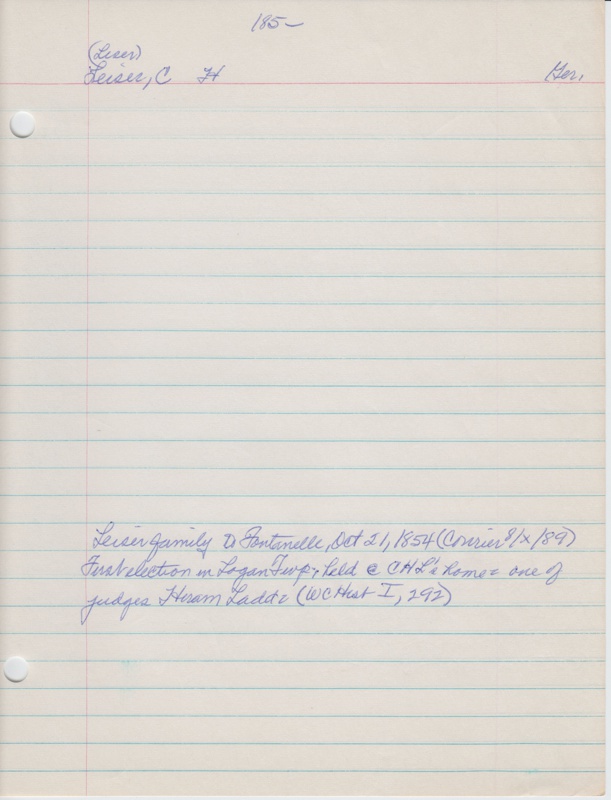 185-
(Leser)
Leiser, C H Ger.
Leiser family to Fontanelle, Oct 21, 1854 (Courier 8/x/89)
First election in Logan Twp; held @ C H L's home = one of
judges Hiram Ladd = (WC Hist I, 292)